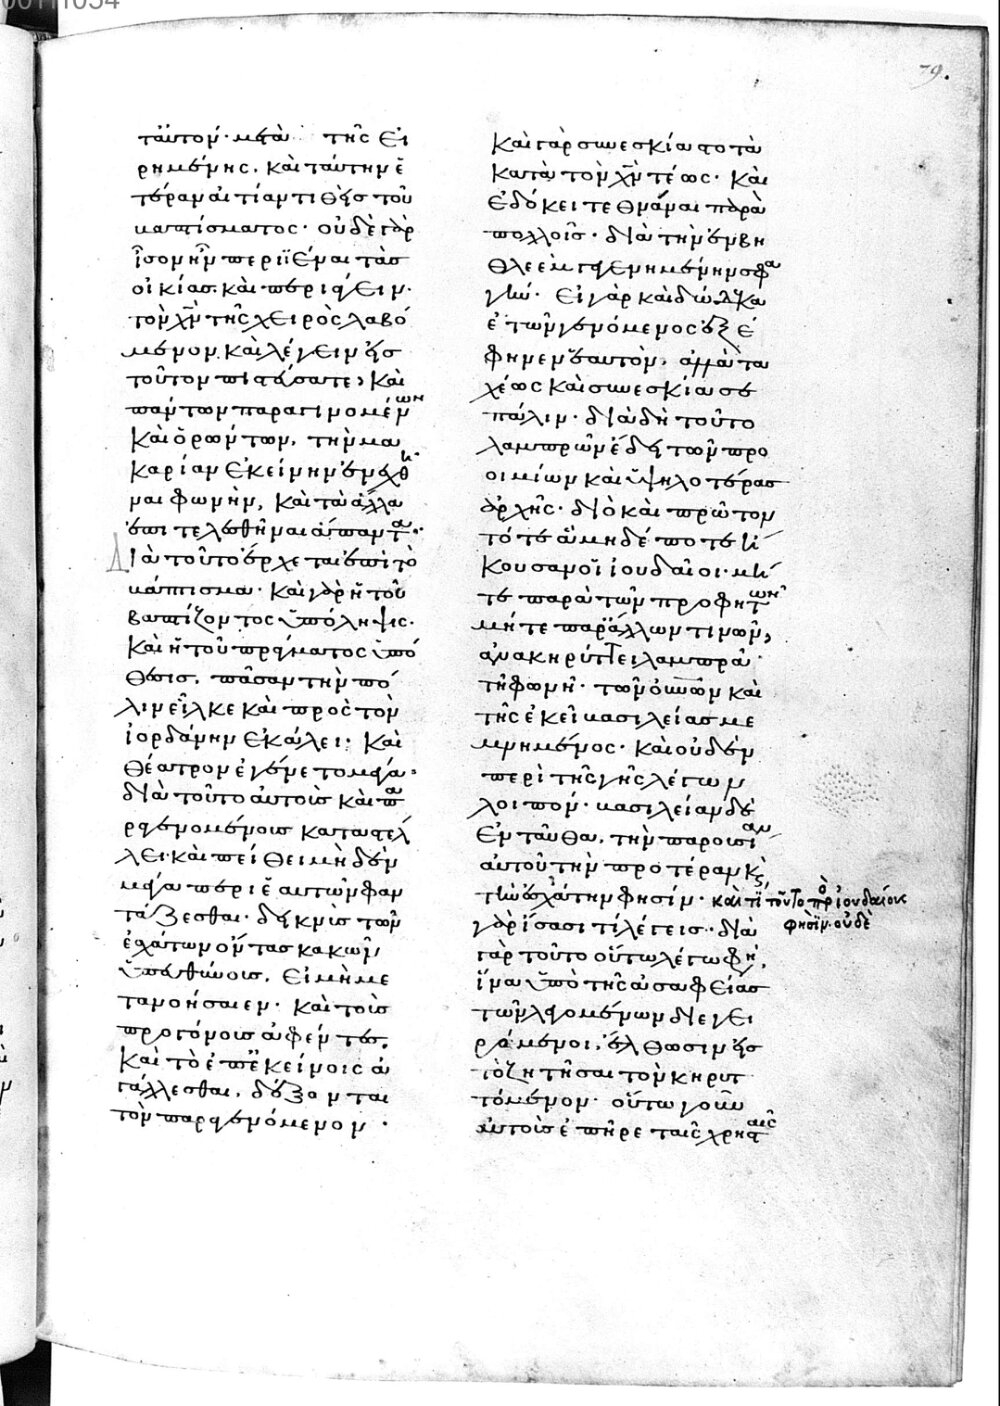 79.
ταύτον· μετὰ τῆς εἰ
ρημένης. καὶ ταύτην ἑ
τέραν αἰτίαν τιθεὶς τοῦ
βαπτίσματος· οὐδὲ γὰρ
ἴσον ἦν περιϊέναι τὰσ
οἰκίας. καὶ περιάγειν·
τὸν χν τῆς χειρὸς λαβό
μενον. καὶ λέγειν εἰς
τοῦτον πιστεύσατε, καὶ
πάντων παραγινομένων
καὶ ὁρώντων, τὴν μα
καρίαν ἐκείνην ἐνεχθῆ
ναι φωνὴν, καὶ τὰ ἄλλα
ἐπιτελεσθῆναι ἅπαντα·
Διὰ τοῦτο ἔρχεται ἐπὶ τὸ
βάπτισμα· καὶ γὰρ ἡ τοῦ
βαπτίζοντος ὑπόληψις·
καὶ ἡ τοῦ πράγματος ὑπό
θεσις, πᾶσαν τὴν πό
λιν εἷλκε καὶ πρὸς τὸν
ἰορδάνην ἐκάλει· καὶ
θέατρον ἐγένετο μέγα·
διὰ τοῦτο αὐτοὺς καὶ πα
ραγενομένους καταστέλ
λει· καὶ πείθει μηδὲν
μέγα περὶ ἑαυτῶν φαν
τάζεσθαι. δεικνὺς τῶν
ἐσχάτων ὄντας κακῶν
ὑπευθύνους, εἰ μὴ με
τανοήσαιεν· καὶ τοὺς
προγόνους ἀφέντες,
καὶ τὸ ἐπ' ἐκείνοις ἀ
γάλλεσθαι, δέξονται
τὸν παραγενόμενον·
καὶ γὰρ συνεσκίαστο τὰ
κατὰ τὸν χν τέως· καὶ
ἐδόκει τεθνάναι παρὰ
πολλοῖς· διὰ τὴν ἐν βη
θλεὲμ γενημένην σφα
γήν· εἰ γὰρ καὶ δώδεκα
ἐτῶν γενόμενος ἐξέ
φηνεν ἑαυτὸν, ἀλλὰ τα
χέως καὶ συνεσκίασε
πάλιν· διὰ δὴ τοῦτο
λαμπρῶν ἔδει τῶν προ
οιμίων καὶ ὑψηλοτέρας
ἀρχῆς· διὸ καὶ πρῶτον
τότε ἃ μηδέποτε ἤ
κουσαν οἱ ἰουδαῖοι· μή
τε παρὰ τῶν προφητῶν
μήτε παρ' ἄλλων τινῶν,
ἀνακηρύττει λαμπρᾶ
τῆ φωνῆ· τῶν οὐνῶν καὶ
τῆς ἐκεῖ βασιλείας με
μνημένος· καὶ οὐδὲν
περὶ τῆς γῆς λέγων
λοιπόν· βασιλείαν δὲ
ἐνταῦθα, τὴν παρουσίαν
αὐτοῦ τὴν προτέραν καὶ
τὴν ἐσχάτην φησίν· καὶ τί τοῦτο πρὸ ἰουδαίους
φησὶν· οὐδὲ
γὰρ ἴσασι τί λέγεις· διὰ
γὰρ τοῦτο οὕτω λέγω φη,
ἵνα ὑπὸ τῆς ἀσαφείας
τῶν λεγομένων διεγει
ρόμενοι, ἔλθωσιν εἰς
τὸ ζητῆσαι τὸν κηρυτ
τόμενον· οὕτω γοῦν
αὐτοὺς ἐπῆρε ταῖς χρησταῖς